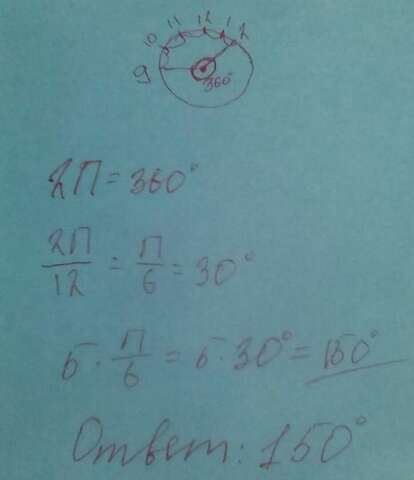 9 10 11 12 1 2
360°
2П = 360°
2П/12 = П/6 = 30°
5 · П/6 = 5 · 30° = 150°
Ответ: 150°